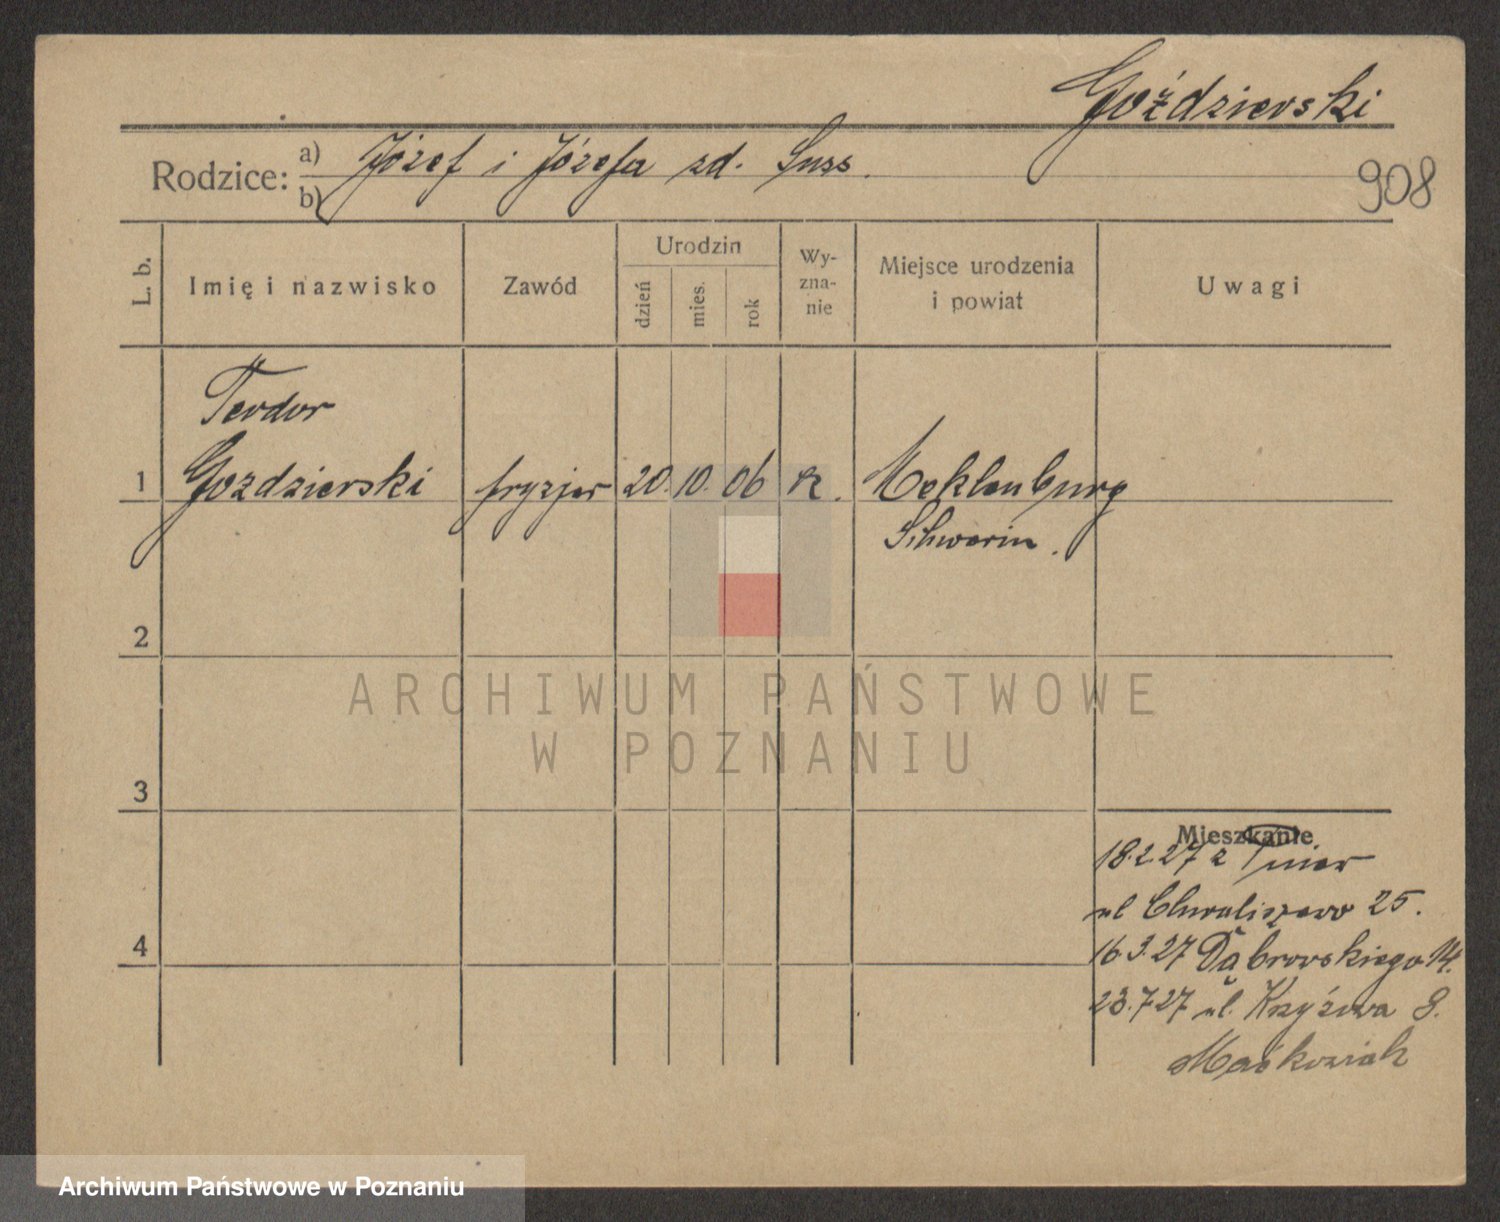 Goździerski
Rodzice: a) Józef i Józefa zd. Suss.
b)
908
L. b.
Imię i nazwisko
Zawód
Urodzin
dzień
mies.
rok
Wy-
zna-
nie
Miejsce urodzenia
i powiat
Uwagi
Teodor
1 Gozdzierski fryzjer 20. 10. 06 R. Meklenburg
Schwerin.
2
ARCHIWUM PAŃSTWOWE
W POZNANIU
3
Mieszkanie
18.2.27 z
ul Chwaliszewo 25.
4
16.3.27 Dąbrowskiego 14.
23.7.27 ul. Krzyżowa 8.
Archiwum Państwowe w Poznaniu